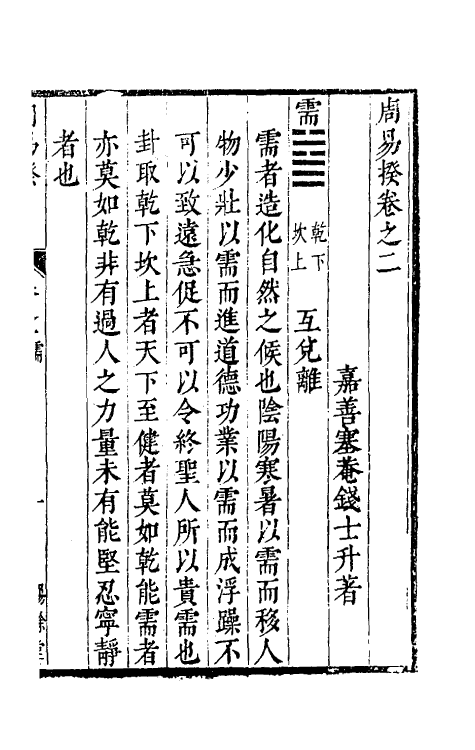 周易揆卷之二
嘉善塞菴錢士升著
需 乾下坎上 互兌離
需者造化自然之候也陰陽寒暑以需而移人
物少壯以需而進道德功業以需而成浮躁不
可以致遠急促不可以令終聖人所以貴需也
卦取乾下坎上者天下至健者莫如乾能需者
亦莫如乾非有過人之力量未有能堅忍寧靜
者也